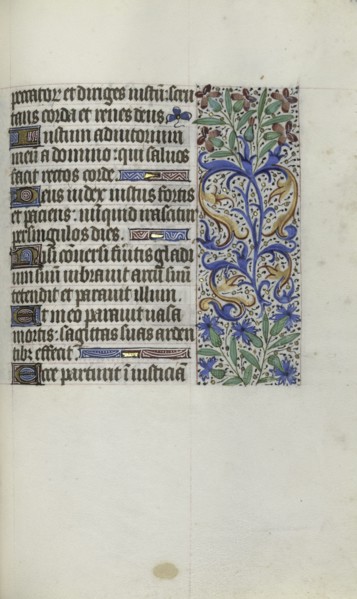 peccatorꝝ et diriges iustū: scru
tans corda et renes deus
Iustum adiutorium
meū a domino: qui saluos
facit rectos corde.
Deus iudex iustus fortis
et paciens: nūquid irascatur
per singulos dies.
Nisi cōuersi fūitis gladi
um suū uibrauit arcū suū
tetendit et parauit illum.
Et in eo parauit uasa
mortis: sagittas suas arden
tibꝰ effecit
Ecce parturit īiusticiā